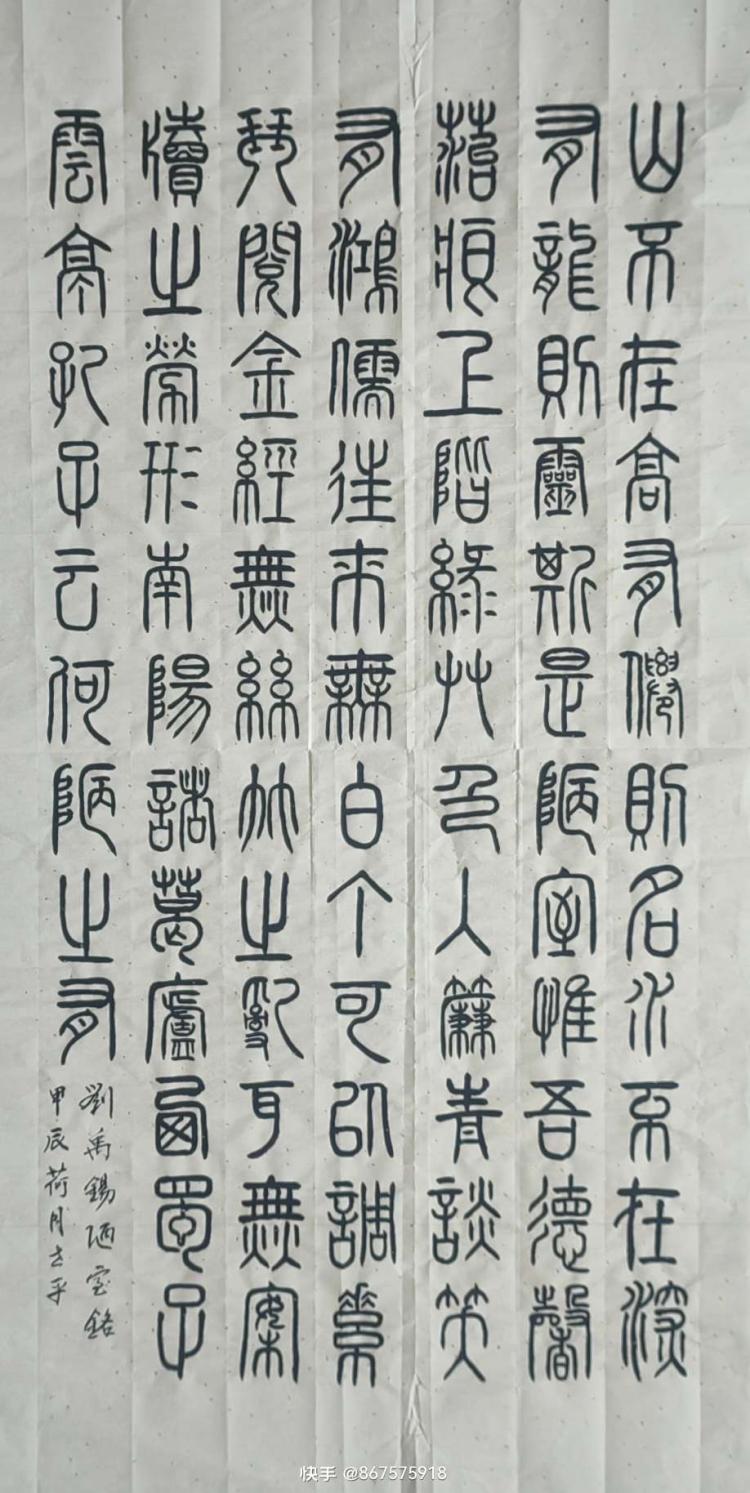 山不在高有僊則名水不在深
有龍則靈斯是陋室惟吾德馨
菭痕上階綠艸色入簾青談笑
有鴻儒往來無白丁可以調素
琴閱金經無絲竹之亂耳無案
牘之勞形南陽諸葛廬西蜀子
雲亭孔子云何陋之有
劉禹錫陋室銘
甲辰荷月平
快手 @867575918